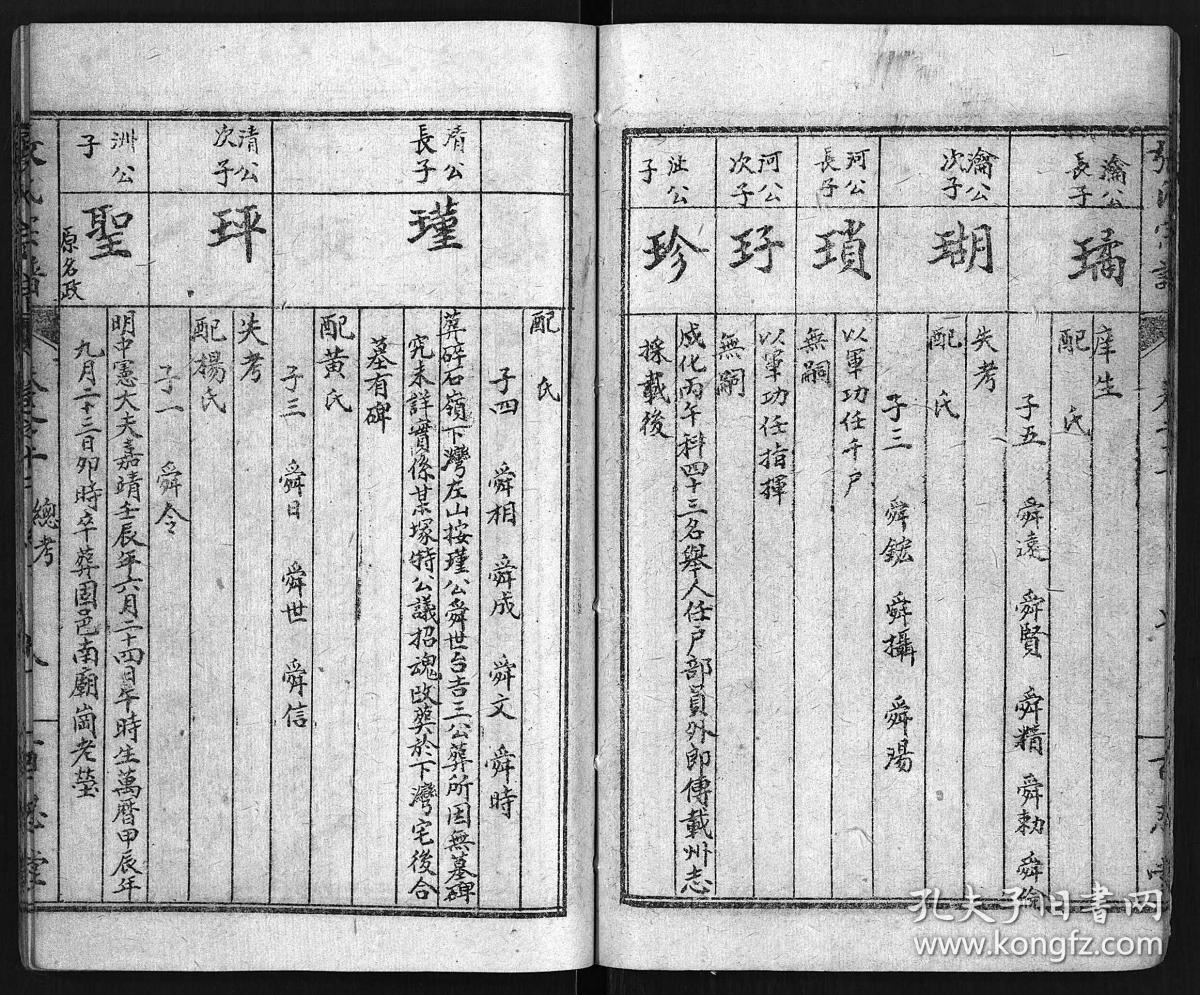 瀹公長子
璚
庠生
配 氏
子五 舜遠 舜賢 舜精 舜勑 舜綸
瀹公次子
瑚
失考
配 氏
子三 舜鋐 舜攝 舜陽
河公長子
瑣
以軍功任千戶
無嗣
河公次子
玗
以軍功任指揮
無嗣
沚公子
珍
成化丙午科四十三名舉人任戶部員外郎傳載州志
採載後
配 氏
子四 舜相 舜成 舜文 舜時
清公長子
瑾
葬碎石嶺下灣左山按瑾公舜世台吉三公葬所因無墓碑
究未詳實係某塚特公議招魂改葬於下灣宅後合
墓有碑
配黃氏
子三 舜日 舜世 舜信
清公次子
玶
失考
配楊氏
子一 舜令
洲公子
聖
原名政
明中憲大夫嘉靖壬辰年六月二十四日午時生萬曆甲辰年
九月二十三日卯時卒葬固邑南廟崗老塋
總考
孔夫子旧书网
www.kongfz.com